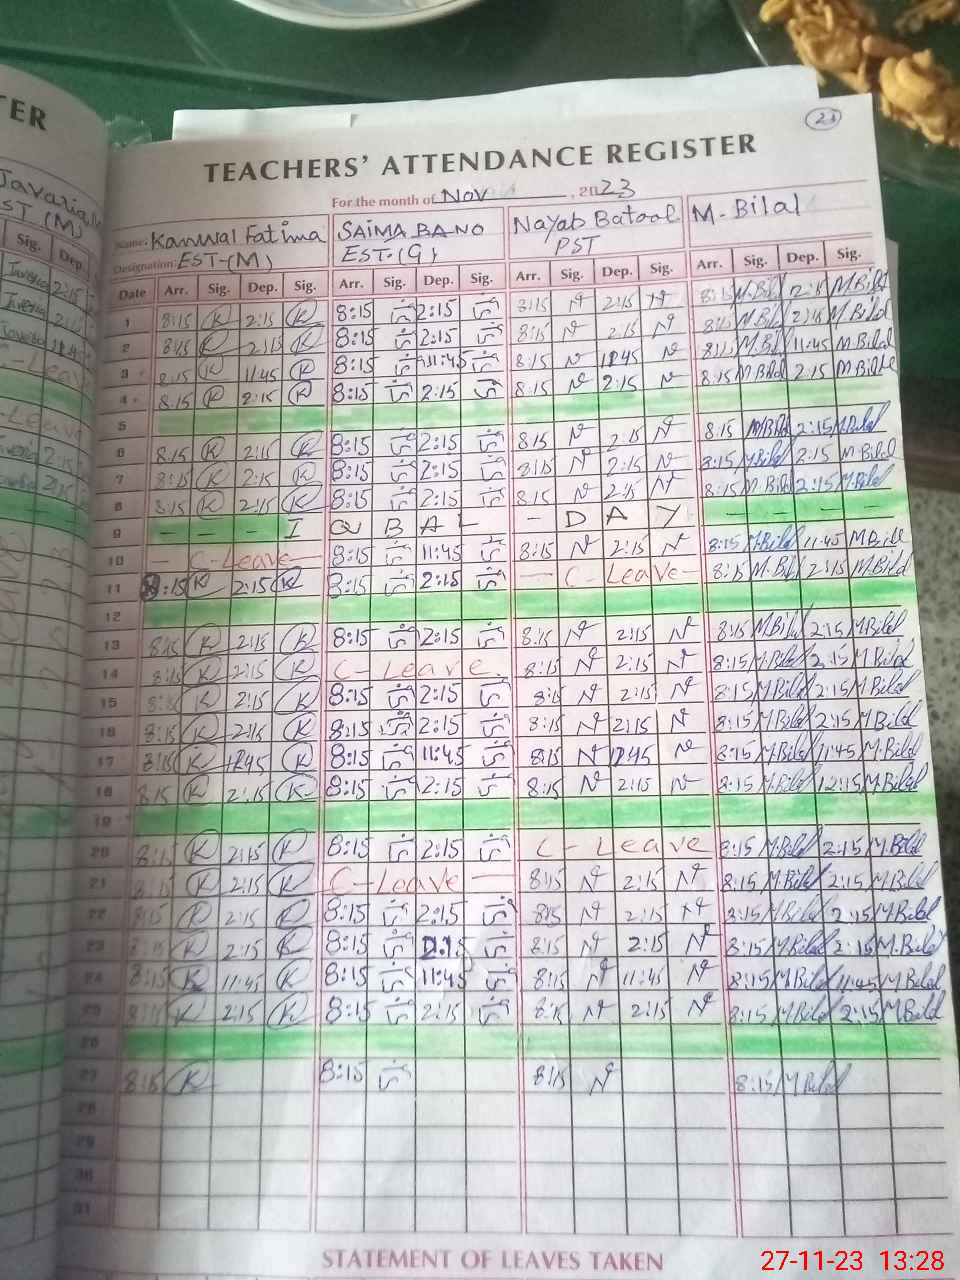 TER
23
TEACHERS' ATTENDANCE REGISTER
For the month of Nov, 2023
Name: Kanwal Fatima SAIMA BANO Nayab Batool M. Bilal
Designation: EST-(M) EST.(G) PST
Date Arr. Sig. Dep. Sig. Arr. Sig. Dep. Sig. Arr. Sig. Dep. Sig. Arr. Sig. Dep. Sig.
1 8:15 K 2:15 K 8:15 2:15 8:15 N 2:15 N 8:15 M.Bilal 2:15 M.Bilal
2 8:15 K 2:15 K 8:15 2:15 8:15 N 2:15 N 8:15 M.Bilal 2:15 M.Bilal
3 8:15 K 11:45 K 8:15 11:45 8:15 N 11:45 N 8:15 M.Bilal 11:45 M.Bilal
4 8:15 K 2:15 K 8:15 2:15 8:15 N 2:15 N 8:15 M.Bilal 2:15 M.Bilal
5
6 8:15 K 2:15 K 8:15 2:15 8:15 N 2:15 N 8:15 M.Bilal 2:15 M.Bilal
7 8:15 K 2:15 K 8:15 2:15 8:15 N 2:15 N 8:15 M.Bilal 2:15 M.Bilal
8 8:15 K 2:15 K 8:15 2:15 8:15 N 2:15 N 8:15 M.Bilal 2:15 M.Bilal
9 - - - I Q B A L - D A Y - - - -
10 - C-Leave- 8:15 11:45 8:15 N 2:15 N 8:15 M.Bilal 11:45 M.Bilal
11 8:15 K 2:15 K 8:15 2:15 - C-Leave- 8:15 M.Bilal 2:15 M.Bilal
12
13 8:15 K 2:15 K 8:15 2:15 8:15 N 2:15 N 8:15 M.Bilal 2:15 M.Bilal
14 8:15 K 2:15 K C-Leave 8:15 N 2:15 N 8:15 M.Bilal 2:15 M.Bilal
15 8:15 K 2:15 K 8:15 2:15 8:15 N 2:15 N 8:15 M.Bilal 2:15 M.Bilal
16 8:15 K 2:15 K 8:15 2:15 8:15 N 2:15 N 8:15 M.Bilal 2:15 M.Bilal
17 8:15 K 11:45 K 8:15 11:45 8:15 N 11:45 N 8:15 M.Bilal 11:45 M.Bilal
18 8:15 K 2:15 K 8:15 2:15 8:15 N 2:15 N 8:15 M.Bilal 2:15 M.Bilal
19
20 8:15 K 2:15 K 8:15 2:15 C-Leave 8:15 M.Bilal 2:15 M.Bilal
21 8:15 K 2:15 K C-Leave - 8:15 N 2:15 N 8:15 M.Bilal 2:15 M.Bilal
22 8:15 K 2:15 K 8:15 2:15 8:15 N 2:15 N 8:15 M.Bilal 2:15 M.Bilal
23 8:15 K 2:15 K 8:15 2:15 8:15 N 2:15 N 8:15 M.Bilal 2:15 M.Bilal
24 8:15 K 11:45 K 8:15 11:45 8:15 N 11:45 N 8:15 M.Bilal 11:45 M.Bilal
25 8:15 K 2:15 K 8:15 2:15 8:15 N 2:15 N 8:15 M.Bilal 2:15 M.Bilal
26
27 8:15 K 8:15 8:15 N 8:15 M.Bilal
28
29
30
31
STATEMENT OF LEAVES TAKEN
27-11-23 13:28